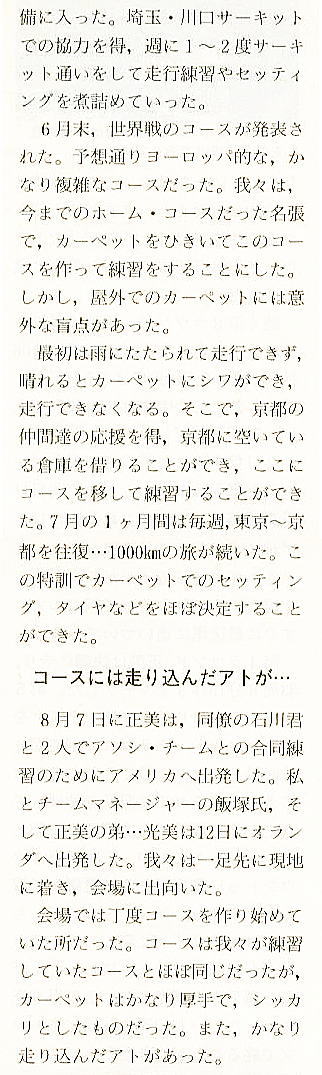 備に入った。埼玉・川口サーキット
での協力を得，週に1～2度サーキ
ット通いをして走行練習やセッティ
ングを煮詰めていった。
6月末，世界戦のコースが発表さ
れた。予想通りヨーロッパ的な，か
なり複雑なコースだった。我々は，
今までのホーム・コースだった名張
で，カーペットをひきいてこのコー
スを作って練習をすることにした。
しかし，屋外でのカーペットには意
外な盲点があった。
最初は雨にたたられて走行できず，
晴れるとカーペットにシワができ，
走行できなくなる。そこで，京都の
仲間達の応援を得，京都に空いてい
る倉庫を借りることができ，ここに
コースを移して練習することができ
た。7月の1ヶ月間は毎週，東京～京
都を往復…1000kmの旅が続いた。こ
の特訓でカーペットでのセッティン
グ，タイヤなどをほぼ決定すること
ができた。
コースには走り込んだアトが…
8月7日に正美は，同僚の石川君
と2人でアソシ・チームとの合同練
習のためにアメリカへ出発した。私
とチームマネージャーの飯塚氏，そ
して正美の弟…光美は12日にオラン
ダへ出発した。我々は一足先に現地
に着き，会場に出向いた。
会場では丁度コースを作り始めて
いた所だった。コースは我々が練習
していたコースとほぼ同じだったが，
カーペットはかなり厚手で，シッカ
リとしたものだった。また，かなり
走り込んだアトがあった。